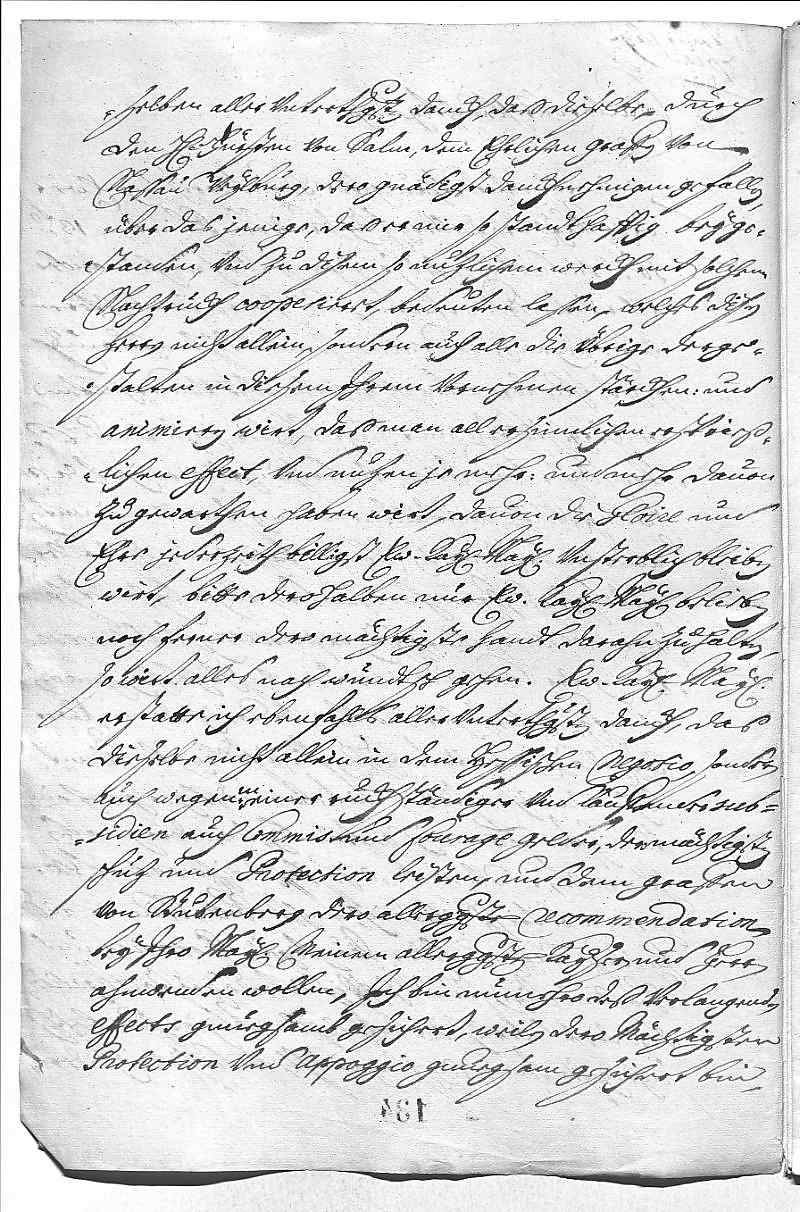 selben aller Unterthgst danckh, das dieselbe durch
den H. Fürsten von Salm, dem Ehrlichen graffen von
Nassau Weylburg, dero gnädigst danckhnehmigen gefallen
über das jenige, das er mir so standthafftig beyge-
standen, und zu disem so nuzlichem werckh mit solchem
Nachtruckh cooperiert, bedeuten lassen, welches dise
herrn nicht allein, sondern auch alle die übrige derge-
stalten in diesem Ihrem Vornehmen stärckhen: und
animiern wirt, das man all ersinnlichen ersprieß-
lichen effect, und nuzen je mehr: und mehr davon
zu gewarthen haben wirt, davon die Gloire und
Ehre jederzeith billigst Ew. Kayl. Mayl. Unsterblich bleiben
wirt, bitte derohalben nur Ew. Kayl. Mayl. belieben
noch ferner dero mächtigste handt darahn zu halten,
so wirt alles nach wundtsch gehen. Ew. Kayl. Mayl.
erstatte ich ebenfahls aller Unterthgst danckh, das
dieselbe nicht allein in dem Hessischen Negotio, sondern
auch wegen meiner ruckhständiger und lauffender sub-
sidien auch Commiss und fourage gelder, der mächtigste
schuz und Protection leisten, und dem graffen
von Sturenberg dero allerggste recommendation
bey Ihro Mayl. Meinem allerggsten Kayser und Herrn
ahnwenden wollen, Ich bin nunmehro des Verlangenden
effects gnuegsamb gesichert, weilen dero Mächtigsten
Protection und appoggio gnuegsam gesichert bin,
134